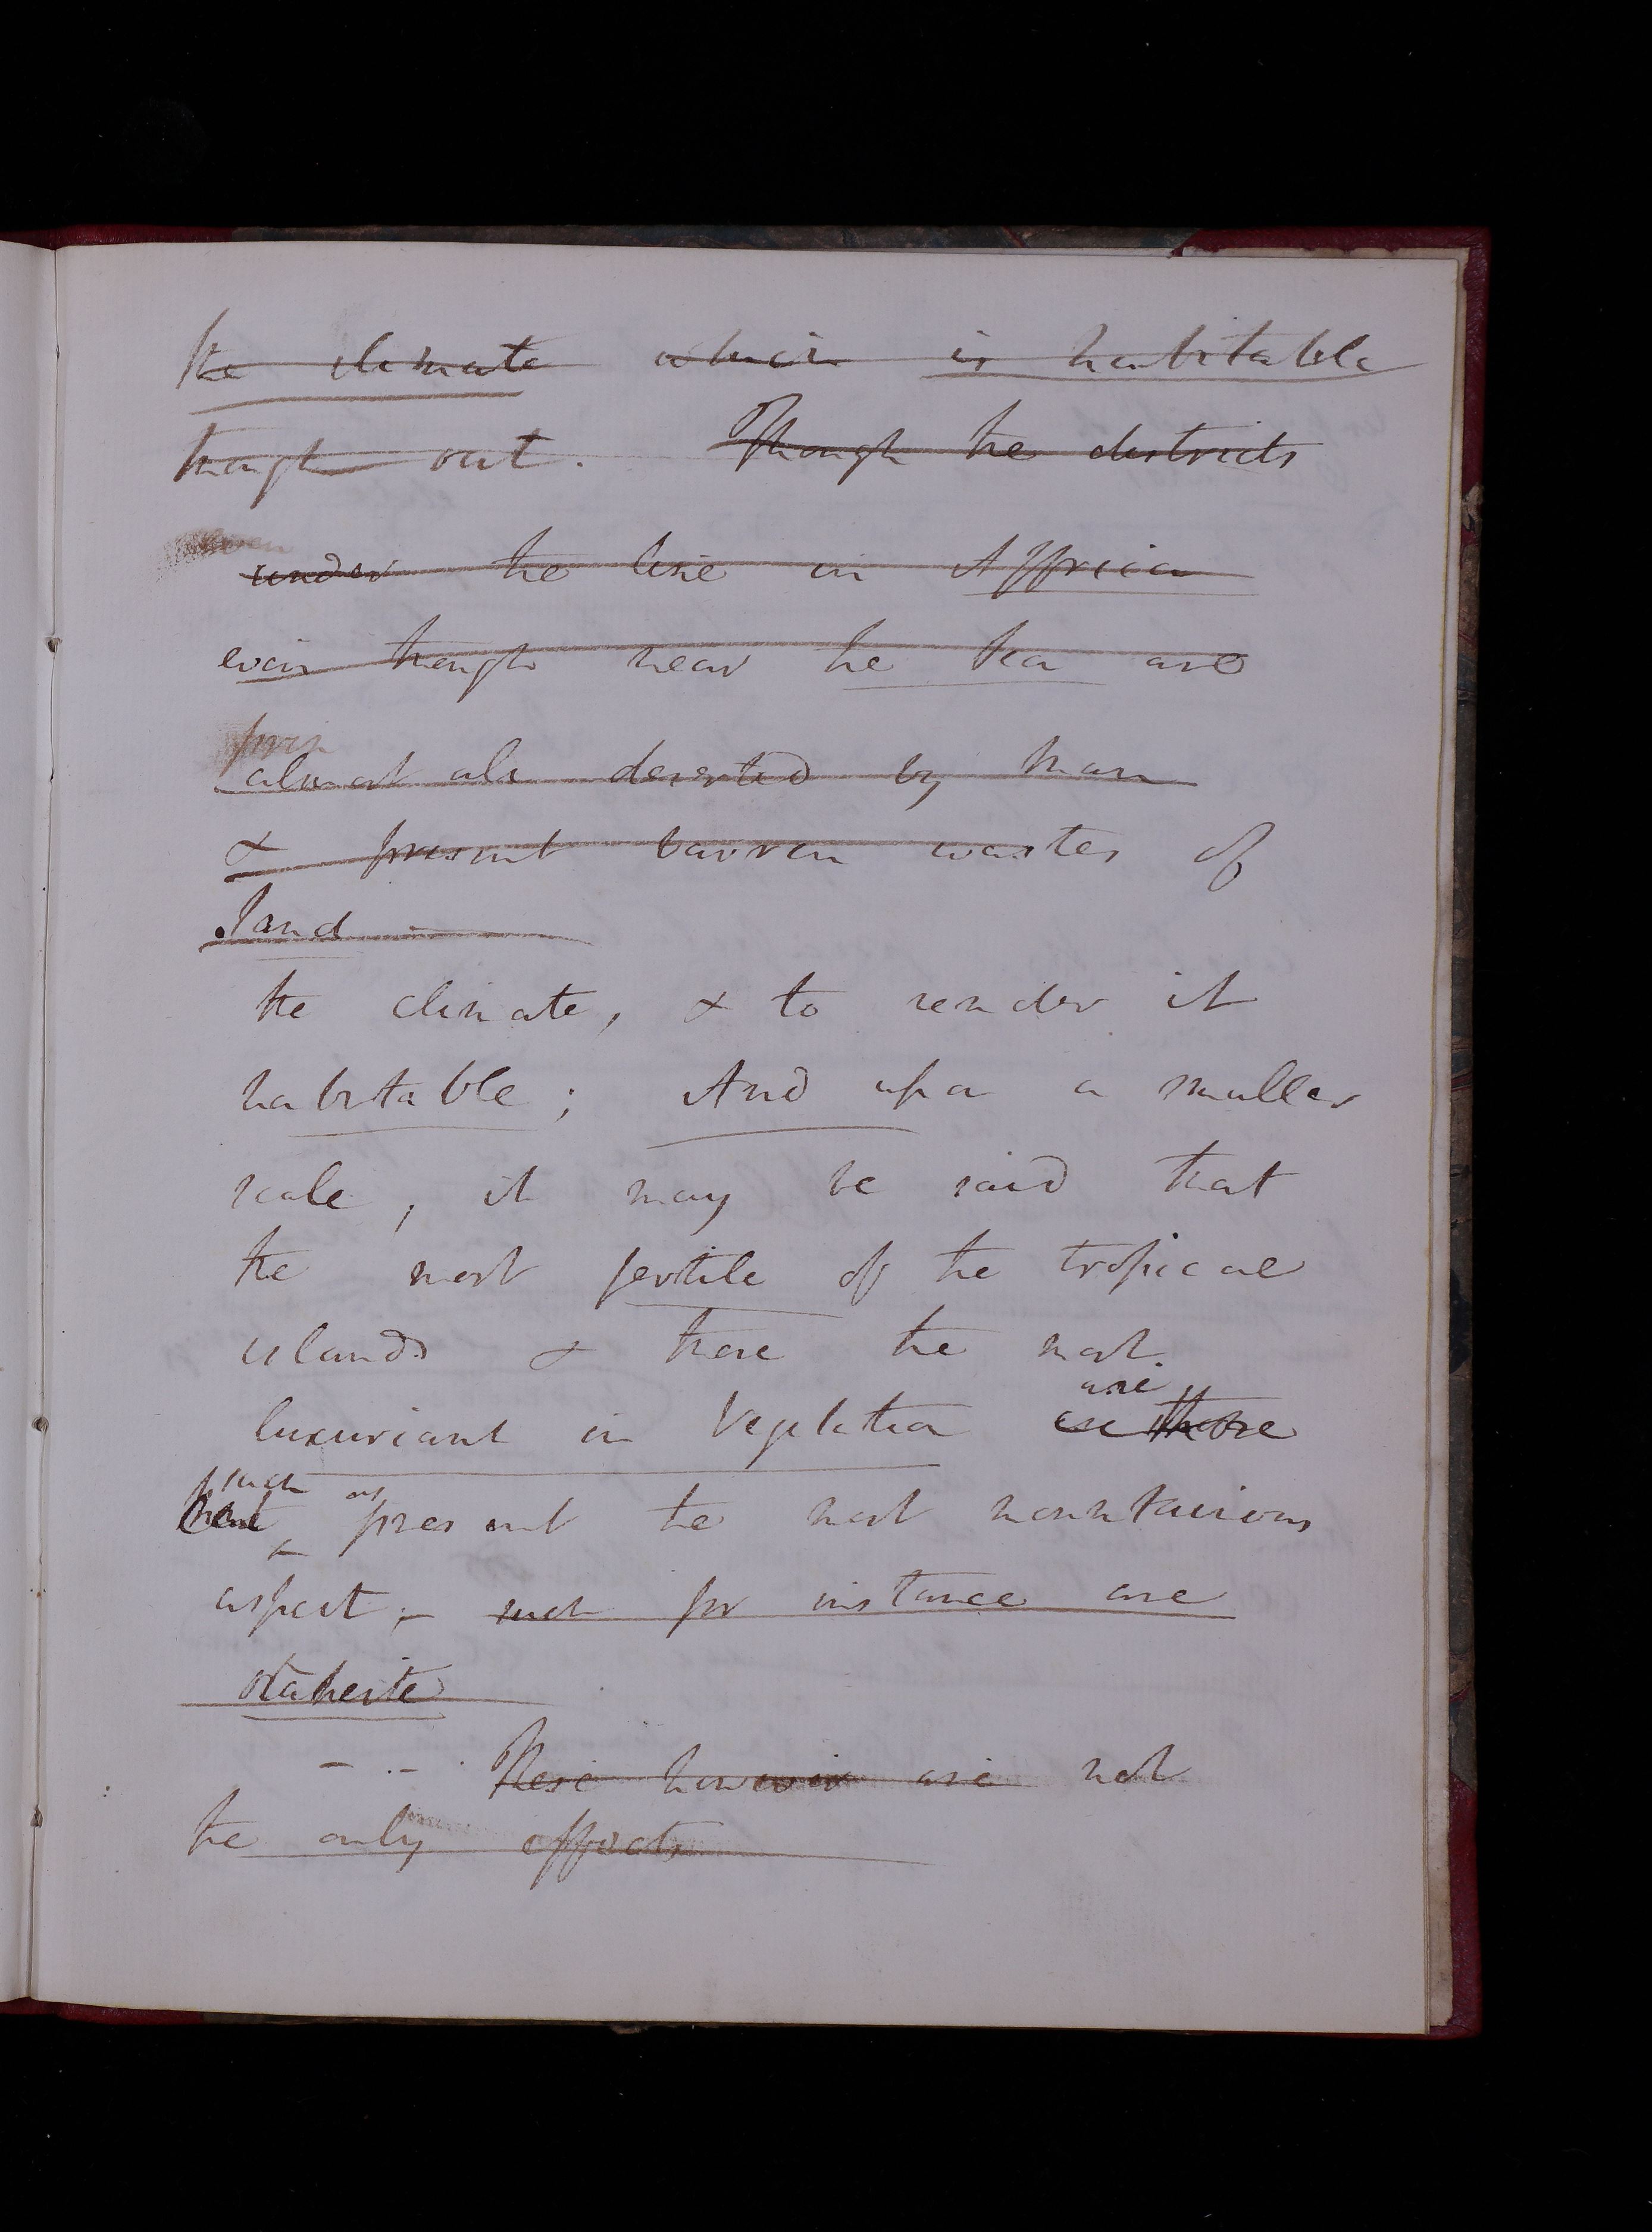 the climate which is habitable
though out. Though the districts
under the line in Affrica
even though near the sea are
almost all deserted by Man
& present barren wastes of
sand
the climate, & to render it
habitable; And upon a smaller
scale, it may be said that
the most fertile of the tropical
islands & those the most
are
luxuriant in Vegetation are those
such as
present the most mountainous
aspect; – such for instance are
Otaheite
– – . These however are not
the only effects